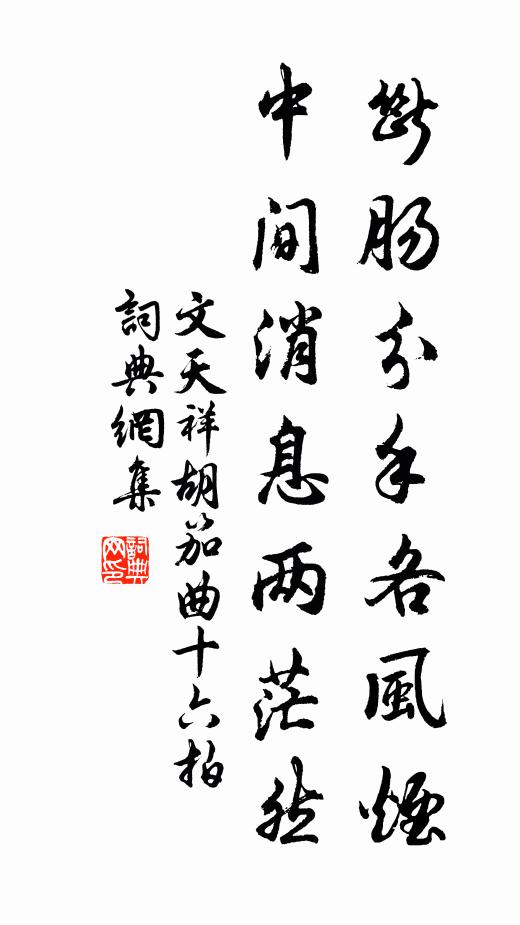 斷肠分手各風煙
中间消息两茫然
文天祥胡笳曲十六拍
詞典網集
詞典网印